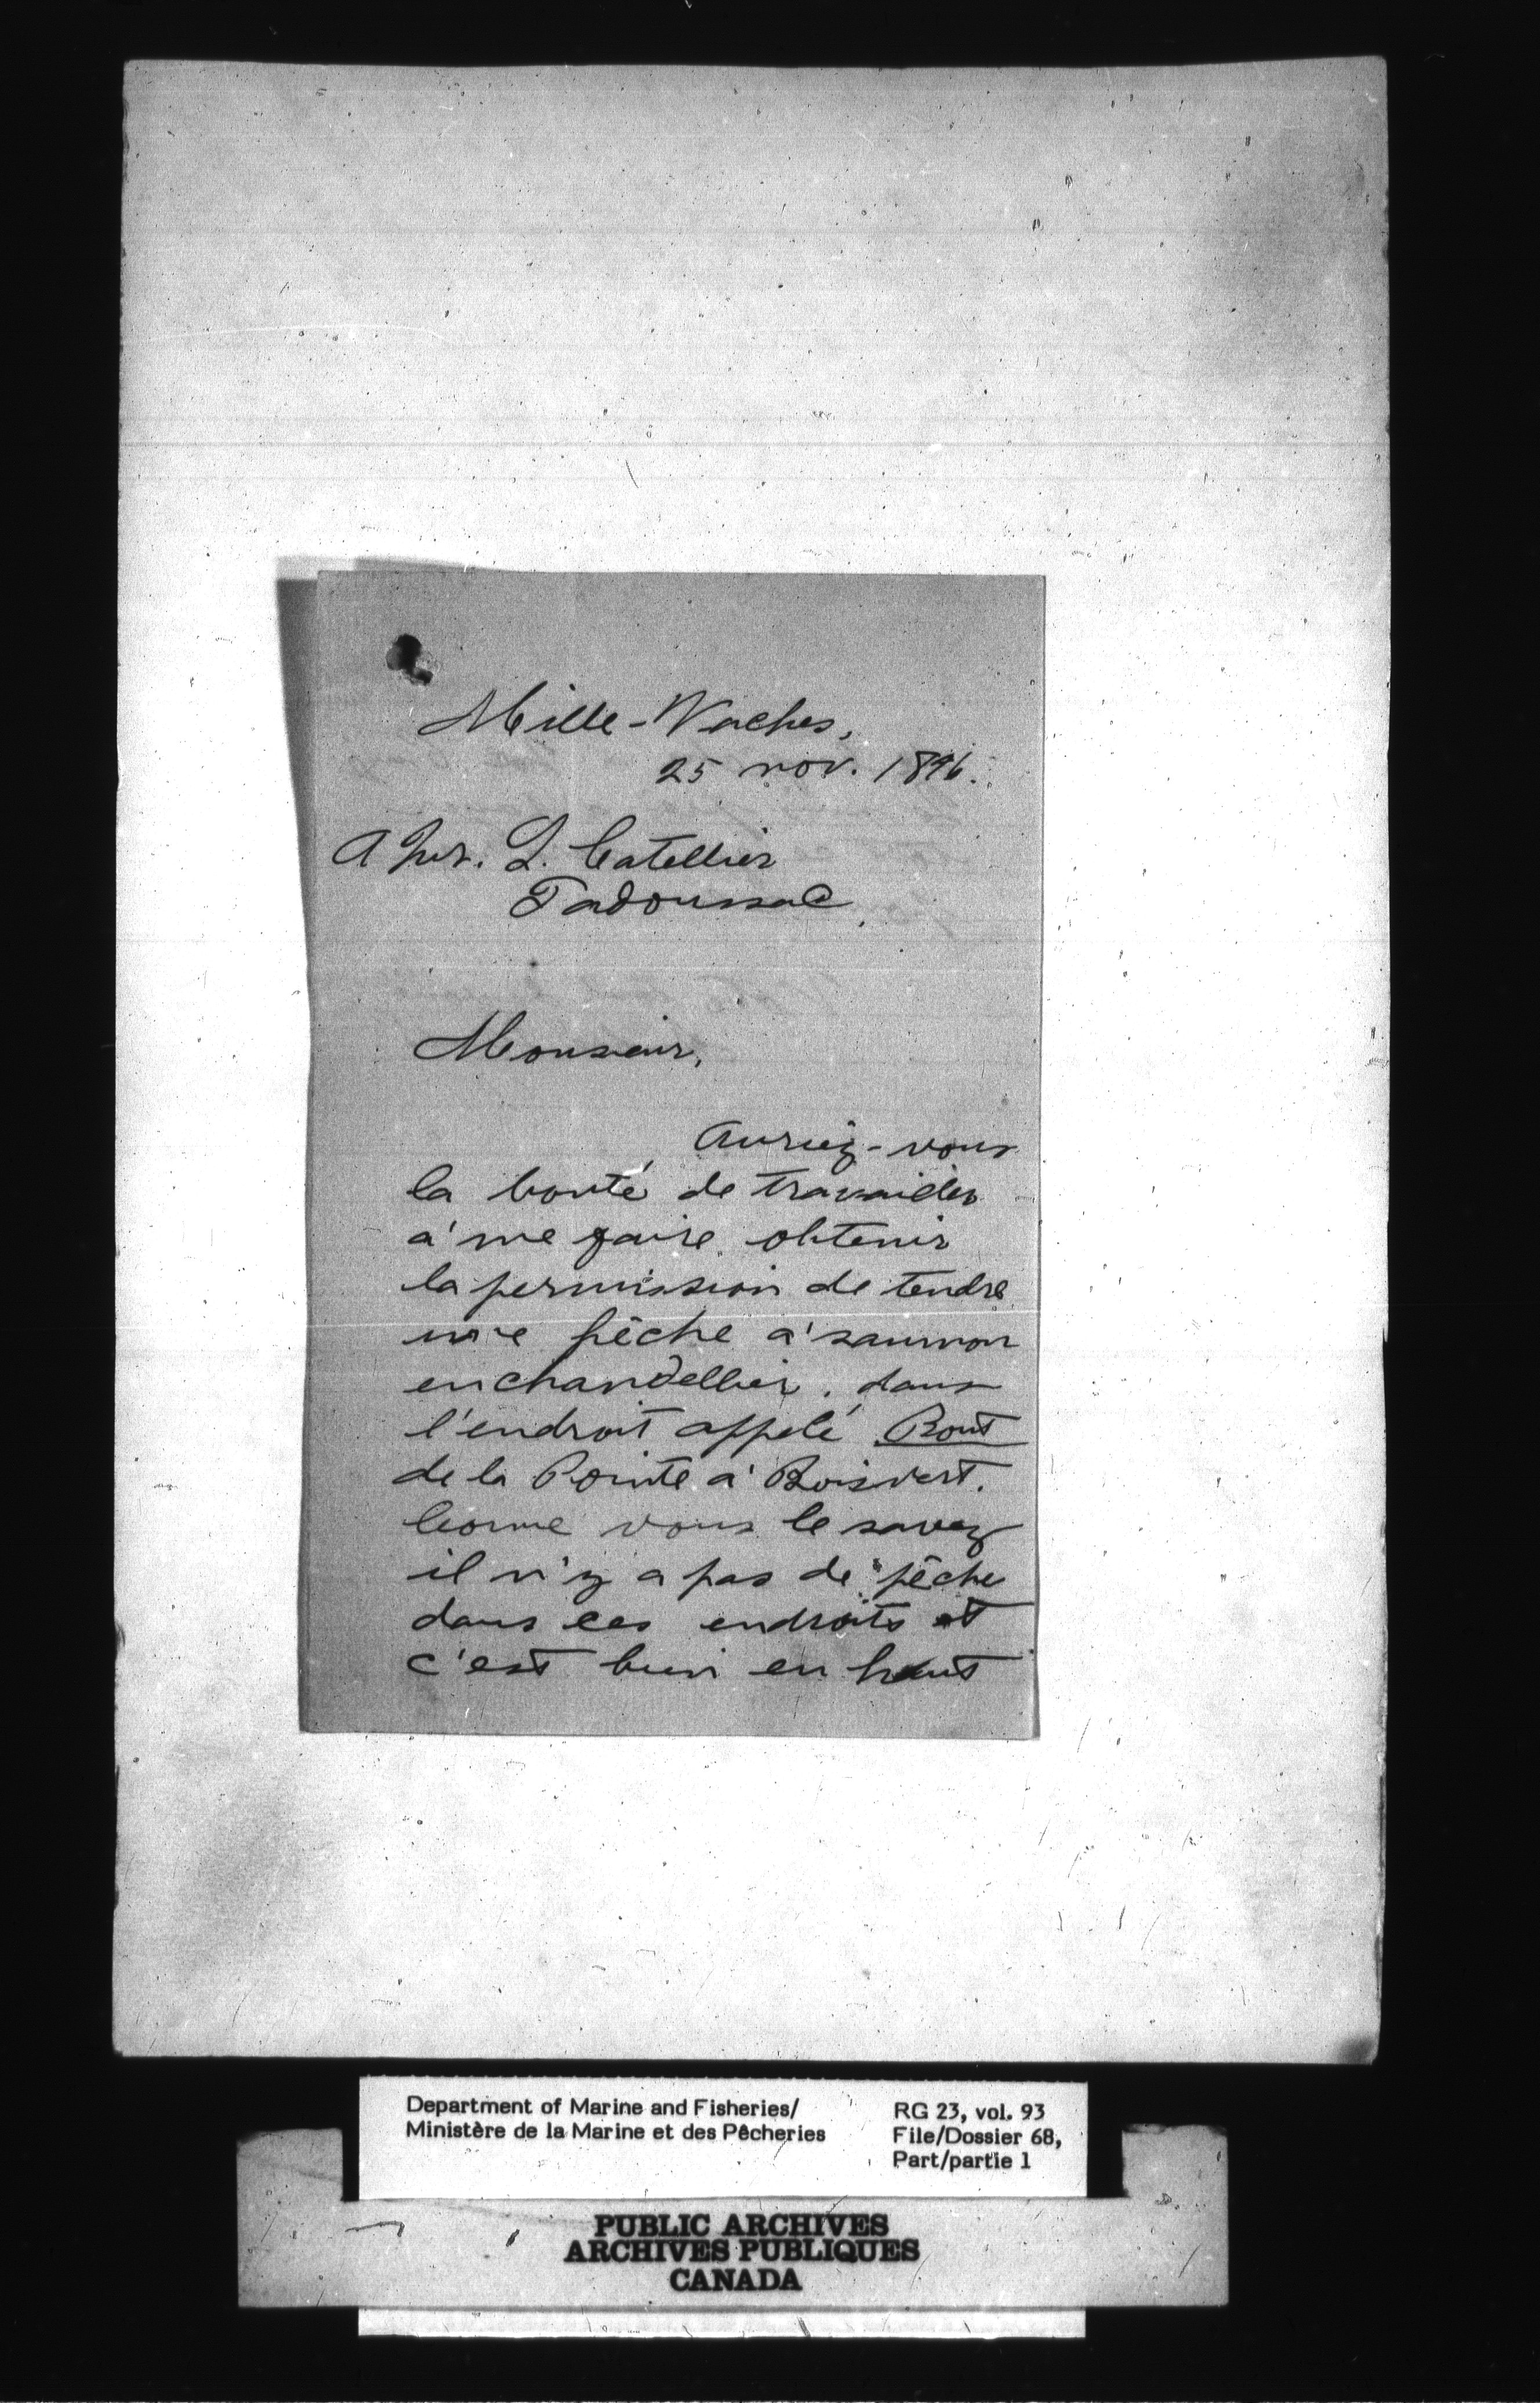 Mille-Vaches,
25 nov. 1896.
A Mr. L. Catellier
Tadoussac
Monsieur,
Auriez-vous
la bonté de travailler
à me faire obtenir
la permission de tendre
une pêche à saumon
en chandellier, dans
l'endroit appelé Bout
de la Pointe à Boisvert.
Comme vous le savez
il n'y a pas de pêche
dans ces endroits et
c'est bien en haut
Department of Marine and Fisheries/
Ministère de la Marine et des Pêcheries
RG 23, vol. 93
File/Dossier 68,
Part/partie 1
PUBLIC ARCHIVES
ARCHIVES PUBLIQUES
CANADA